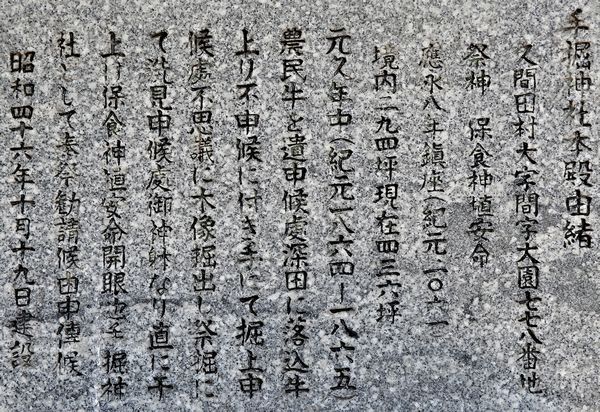 手堀神社本殿由緒
久間田村大字間字大園七七八番地
祭神　保食神埴安命
應永八年鎮座(紀元二〇六一)
境内二九四坪現在四三六坪
元久年中(紀元一八六四ー一八六五)
農民牛を遣申候處深田に落込牛
上り不申候に付き手にて掘上申
候處不思議に木像掘出し祭堀に
て洗見申候處御神躰なり直に干
上げ保食神垣安命開眼させ掘神
社として奉祭勧請候由申傳候
昭和四十六年十月十九日建設